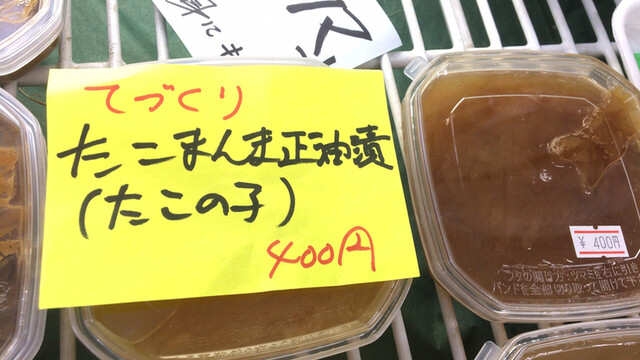 てづくり
たこまんま正油漬
(たこの子)
400円
¥400円
フタの開閉方・ツマミを右に引き
バンドを全部切り取って開けて下